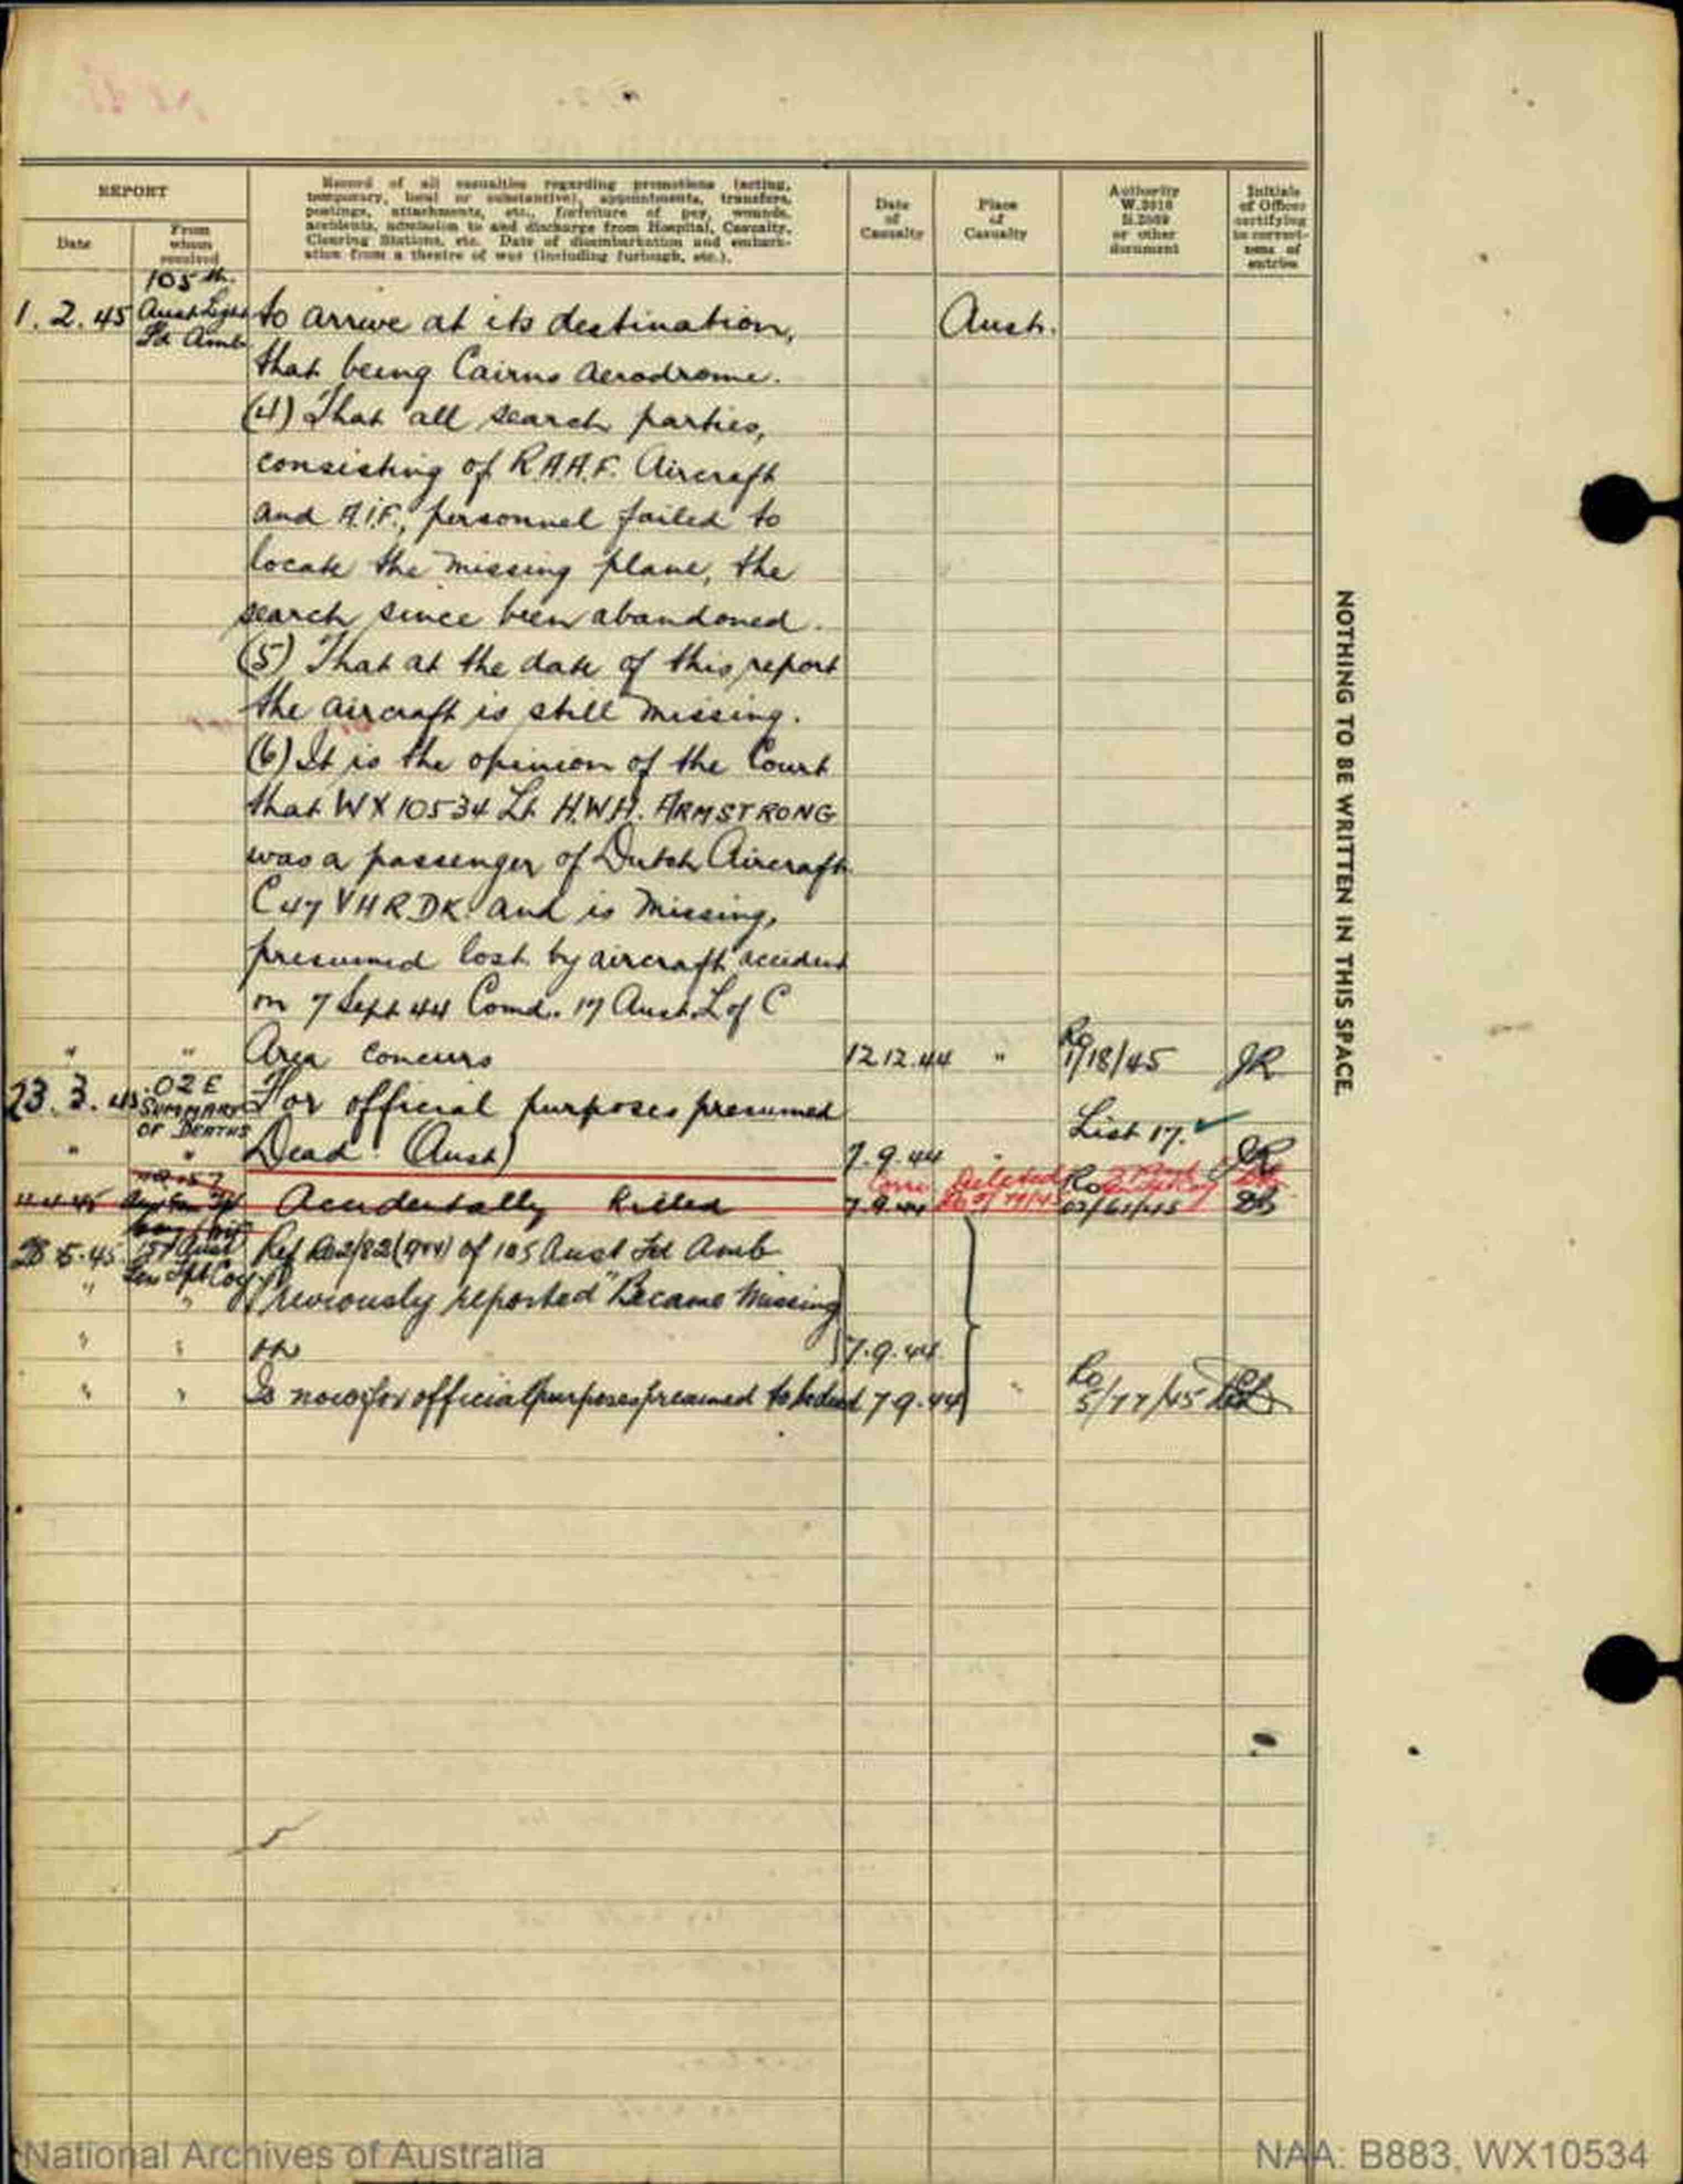 REPORT
Date
From whom received
Record of all casualties regarding promotions (acting,
temporary, local or substantive), appointments, transfers,
postings, attachments, etc., forfeiture of pay, wounds,
accidents, admission to and discharge from Hospital, Casualty,
Clearing Stations, etc. Date of disembarkation and embark-
ation from a theatre of war (including furlough, etc.).
Date of Casualty
Place of Casualty
Authority W.3010 or other document
Initials of Officer certifying to correct-ness of entries
105 th.
1.2.45 Aust Light to arrive at its destination, Aust.
Fd Amb
that being Cairns Aerodrome.
(4) That all search parties,
consisting of R.A.A.F. Aircraft
and A.I.F., personnel failed to
locate the missing plane, the
search since been abandoned.
(5) That at the date of this report
the aircraft is still missing.
(6) It is the opinion of the Court
that WX10534 Lt H.W.H. ARMSTRONG
was a passenger of Dutch Aircraft
C47 VHRDK and is missing,
presumed lost by aircraft accident
on 7 Sept 44 Comd. 17 Aust. L of C
" " Area concurs 12.12.44 " Ro 1/18/45 JR
23.3.45 O2E SUMMARY OF DEATHS For official purposes presumed
List 17.
" " Dead (Aust) 7.9.44 JR
deleted
Accidentally Killed 7.9.44 Ro
Aust Ref Ro2/82(944) of 105 Aust Fd Amb
Gen Tpt Coy
" " Previously reported "Became Missing
" " on 7.9.44
" " Is now for official purposes presumed to be dead 7.9.44 " Ro 5/77/45
NOTHING TO BE WRITTEN IN THIS SPACE.
National Archives of Australia
NAA: B883, WX10534